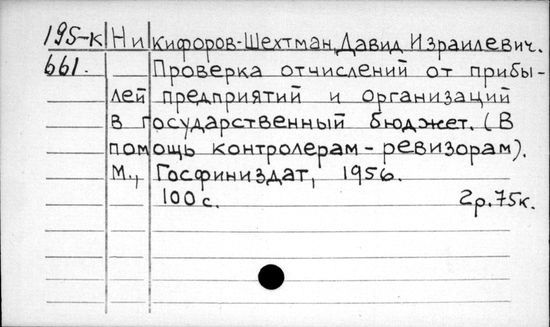 195-к Никифоров-Шехтман, Давид Израилевич.
661. Проверка отчислений от прибы-
лей предприятий и организаций
в государственный бюджет. (В
помощь контролерам-ревизорам).
М., Госфиниздат, 1956.
100 с. 2р.75к.